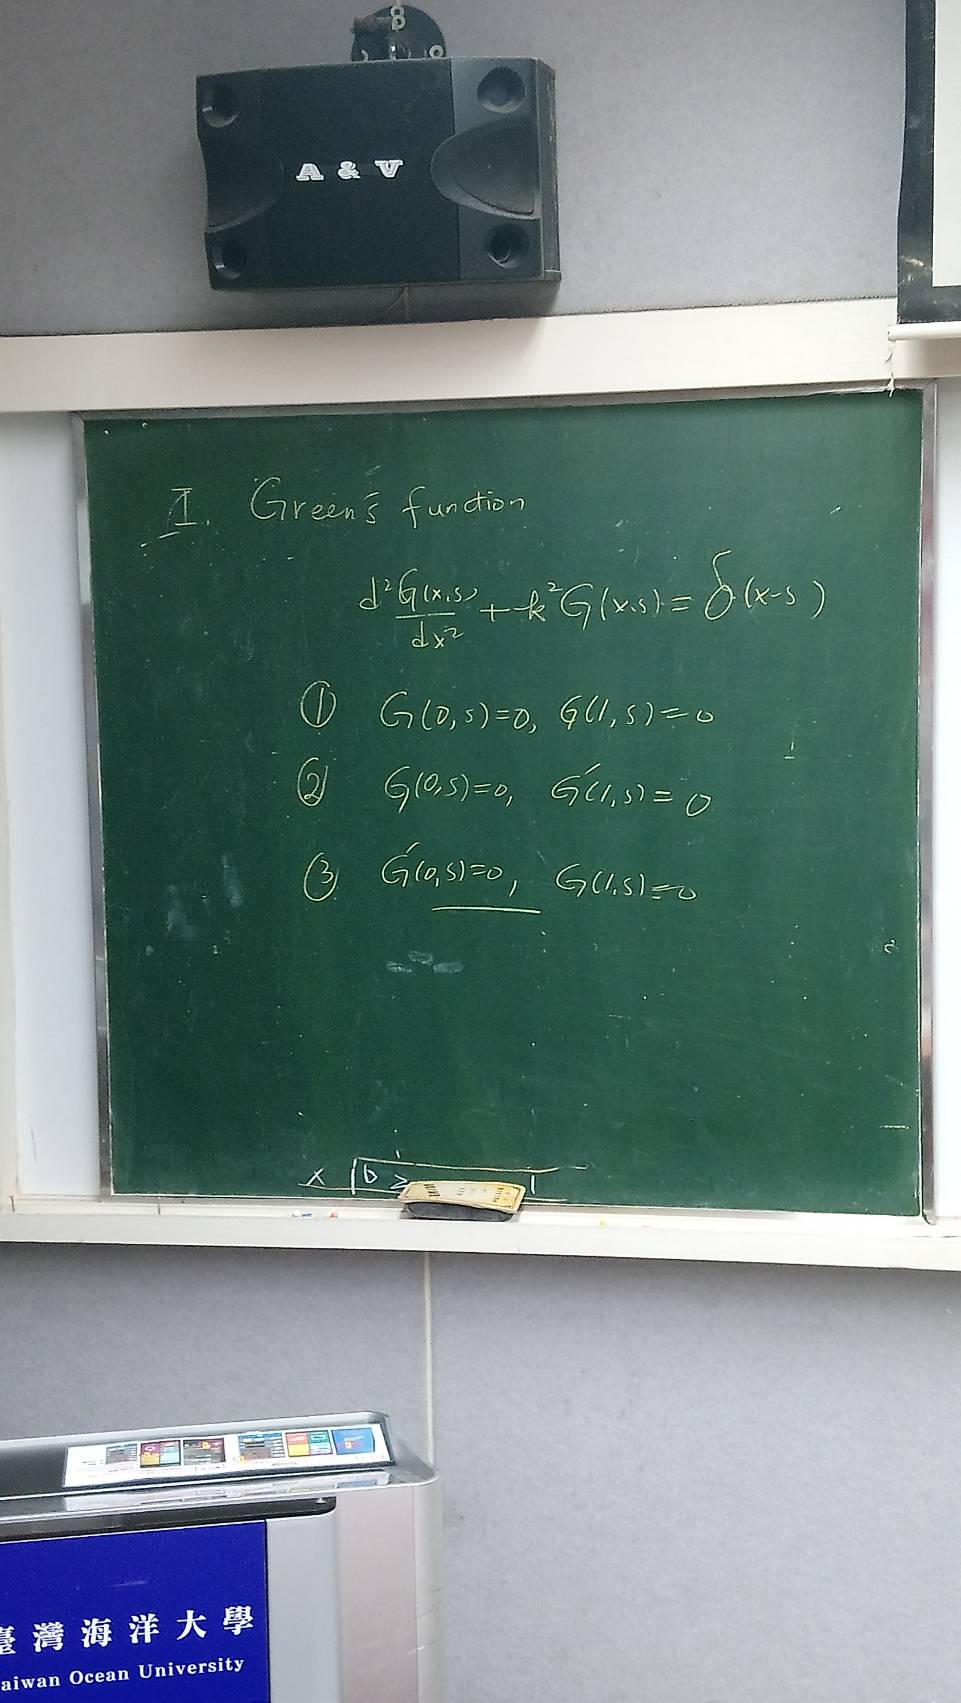 A & V
I. Green's function
d²G(x,s)/dx² + k²G(x,s) = δ(x-s)
① G(0,s)=0, G(1,s)=0
② G(0,s)=0, G'(1,s)=0
③ G'(0,s)=0, G(1,s)=0
x
1
臺灣海洋大學
aiwan Ocean University